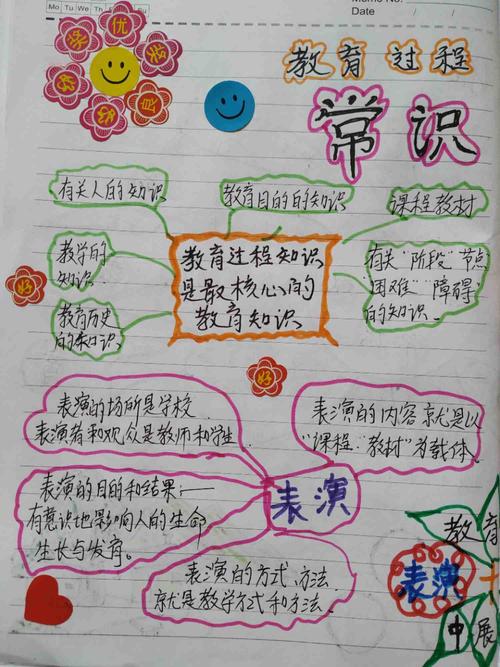 Mo Tu We Th Fr Sa Su
Memo No.
Date / /
优
奖
奖
好
好
良
教育过程
常识
有关人的知识
教育目的的知识
课程教材
教学的
知识
教育过程知识
是最核心的
教育知识
有关“阶段”节点
“困难”“障碍”
的知识.
好
教育历史
的知识.
好
表演的场所是学校.
表演者和观众是教师和学生
表演的内容就是以
“课程、教材”为载体.
表演的目的和结果:—
有意识地影响人的生命
生长与发育。
表演
表演的方式、方法
就是教学方式和方法.
教育
表演
中展